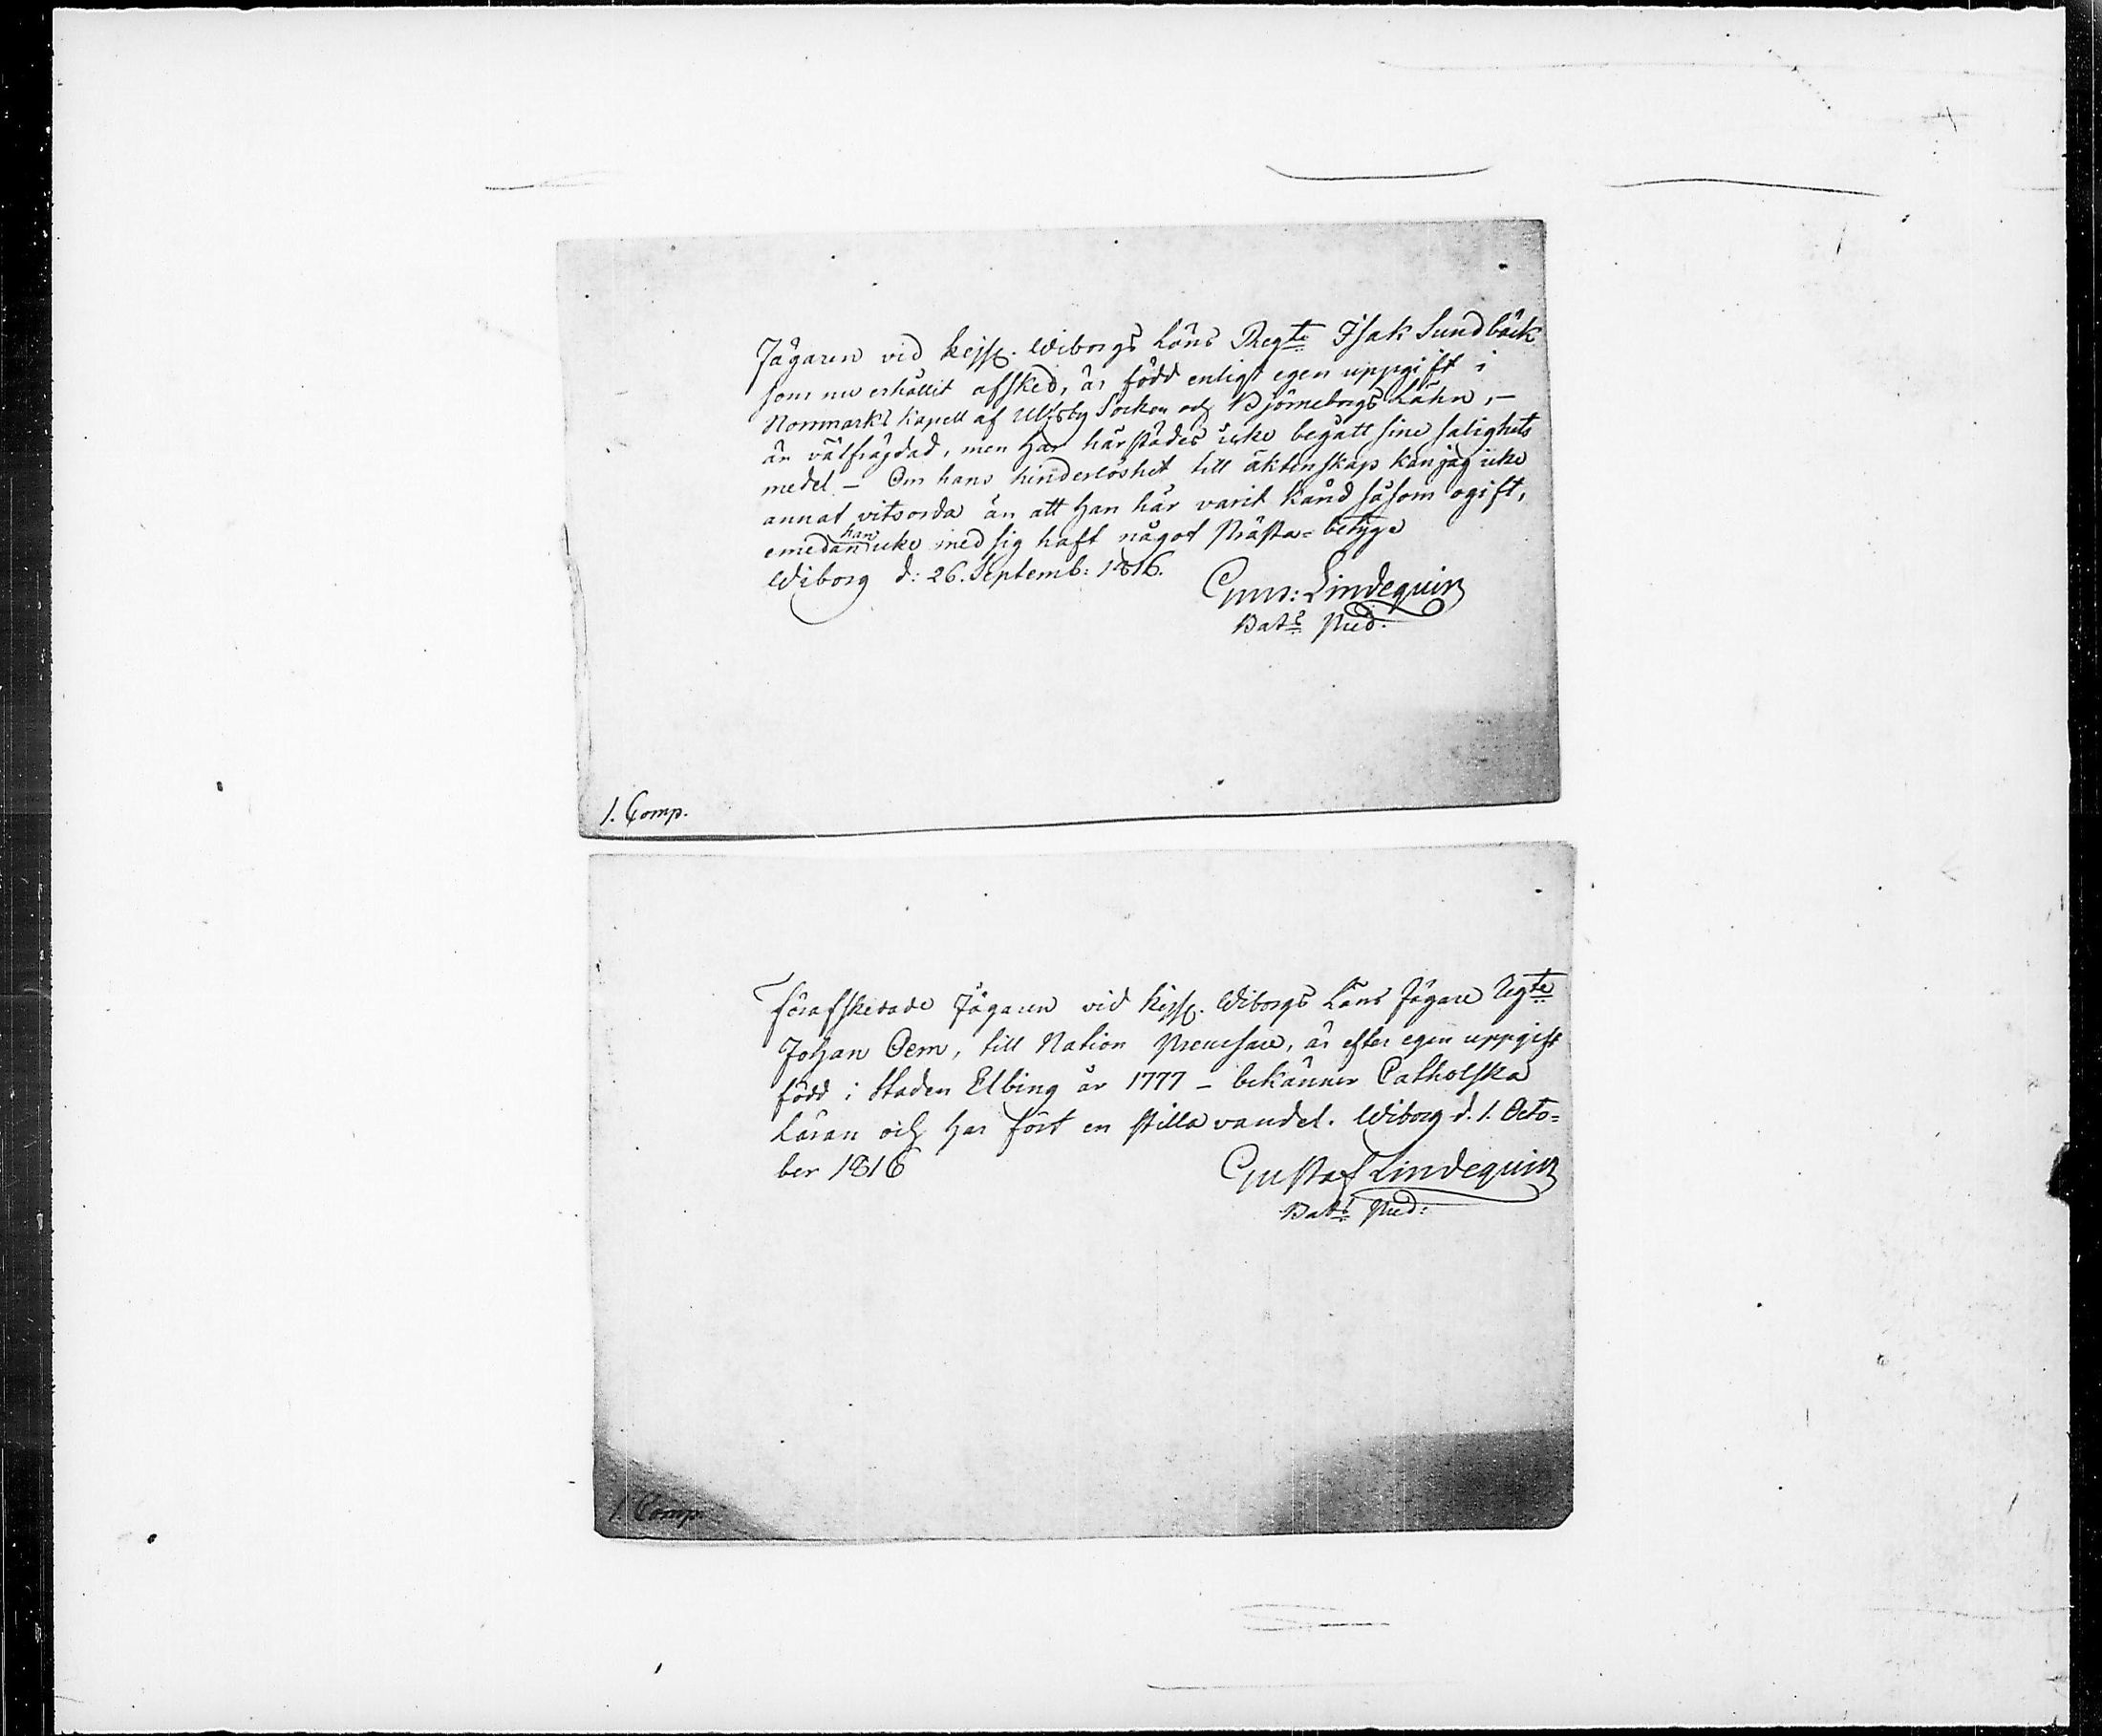 Jägaren vid Kejss. Wiborgs Läns Regte Isak Sundbäck
som nu erhållit afsked, är född enligt egen uppgift i
Norrmarks Kapell af Ulfsby Socken och Björneborgs Lähn, –
är välfrägdad, men har härstädes icke begått sine salighets
medel – Om hans hinderlöshet till äktenskap kan jag icke
annat vitsorda än att han här varit känd såsom ogift,
emedan han icke med sig haft något Prästa-betyge
Wiborg d: 26. Septemb: 1816.
Gust: Lindequist
Bats Pred.
1. Comp.
Förafskedade Jägaren vid Kejss. Wiborgs Läns Jägare Regte
Johan Oem, till Nation Preussare, är efter egen uppgift
född i Staden Elbing år 1777 – bekänner Catholska
Läran och har fört en stilla vandel. Wiborg d. 1. Octo=
ber 1816
Gustaf Lindequist
Bats Pred:
1. Comp.